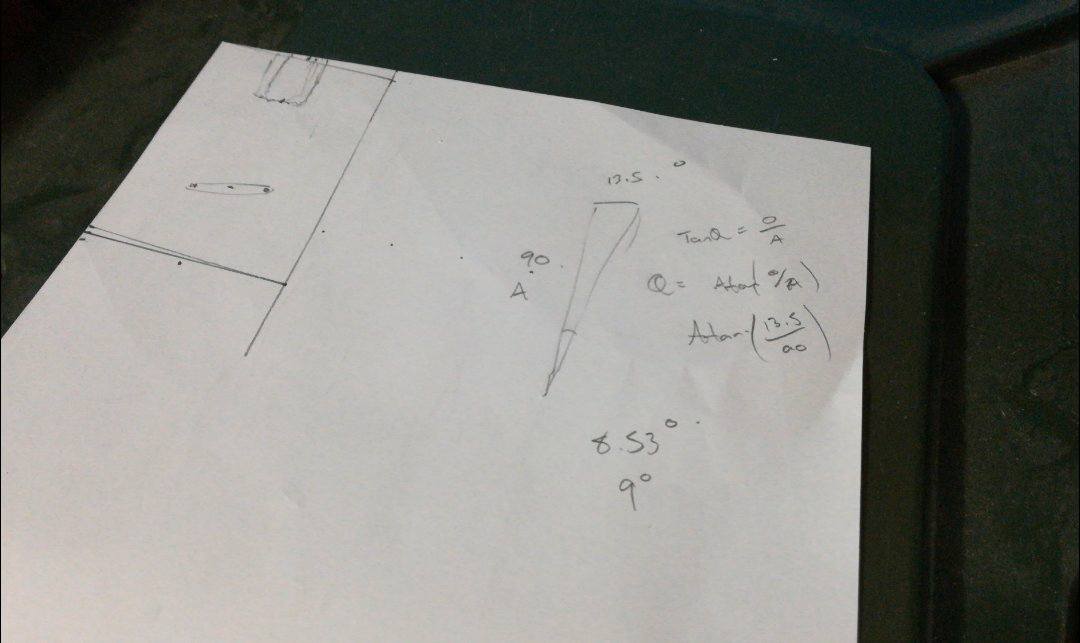 13.5. O
90.
A
TanQ = O/A
Q = Atan(O/A)
Atan(13.5/90)
8.53°.
9°